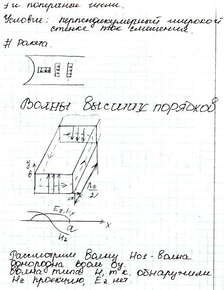 и поперечные щели.
Условие: перпендикулярный широкой
стенке ток смещения.
Волны высших порядков
a
x
Hz
Рассмотрим волну H01 - волна
однородна вдоль Oy.
Волна типа H, т.к. обнаружили
Hz проекцию, Ez нет.